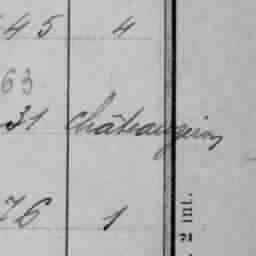 45 4
63
31 châteaugiron
76 1
21 int.